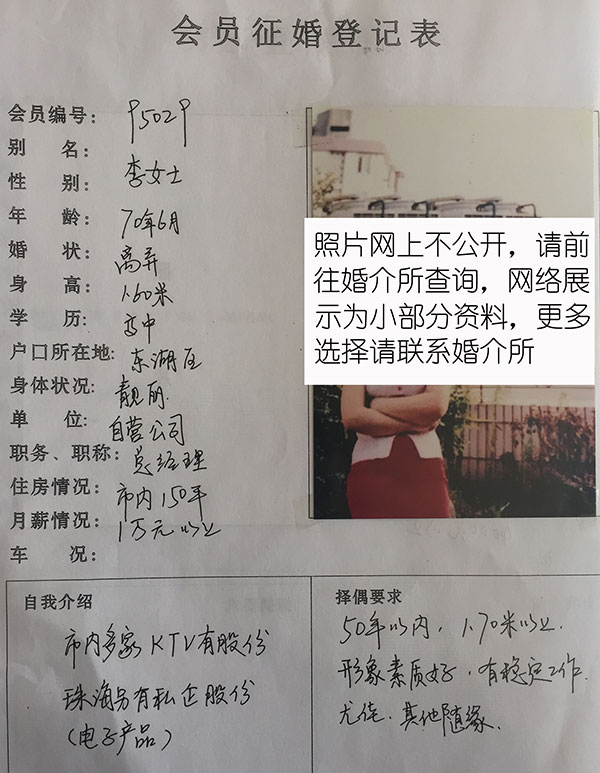 会员征婚登记表
会员编号: 95029
别 名:
性 别: 李女士
年 龄: 70年6月
婚 状: 离异
身 高: 1.60米
学 历: 高中
户口所在地: 东湖区
身体状况: 靓丽.
单 位: 自营公司
职务、职称: 总经理
住房情况: 市内150平
月薪情况: 1万元以上
车 况:
照片网上不公开，请前
往婚介所查询，网络展
示为小部分资料，更多
选择请联系婚介所
自我介绍
市内多家KTV有股份
珠海另有私企股份
(电子产品)
择偶要求
50年以内，1.70米以上.
形象素质好，有稳定工作.
尤佳.其他随缘.